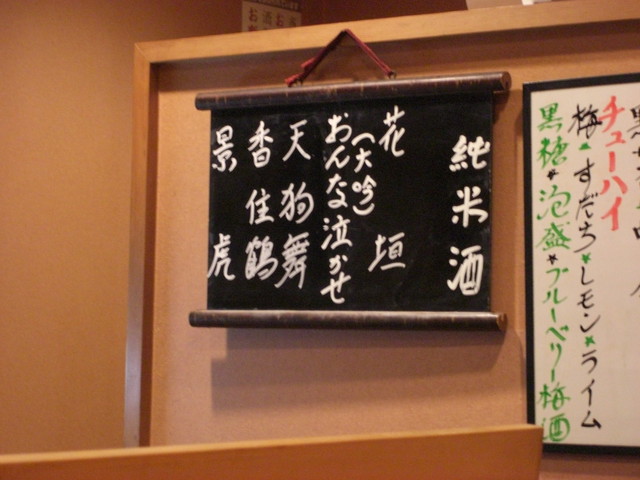 純米酒
花垣
(大吟)
おんな泣かせ
天狗舞
香住鶴
景虎
チューハイ
梅*すだち*レモン*ライム
黒糖*泡盛*ブルーベリー梅酒